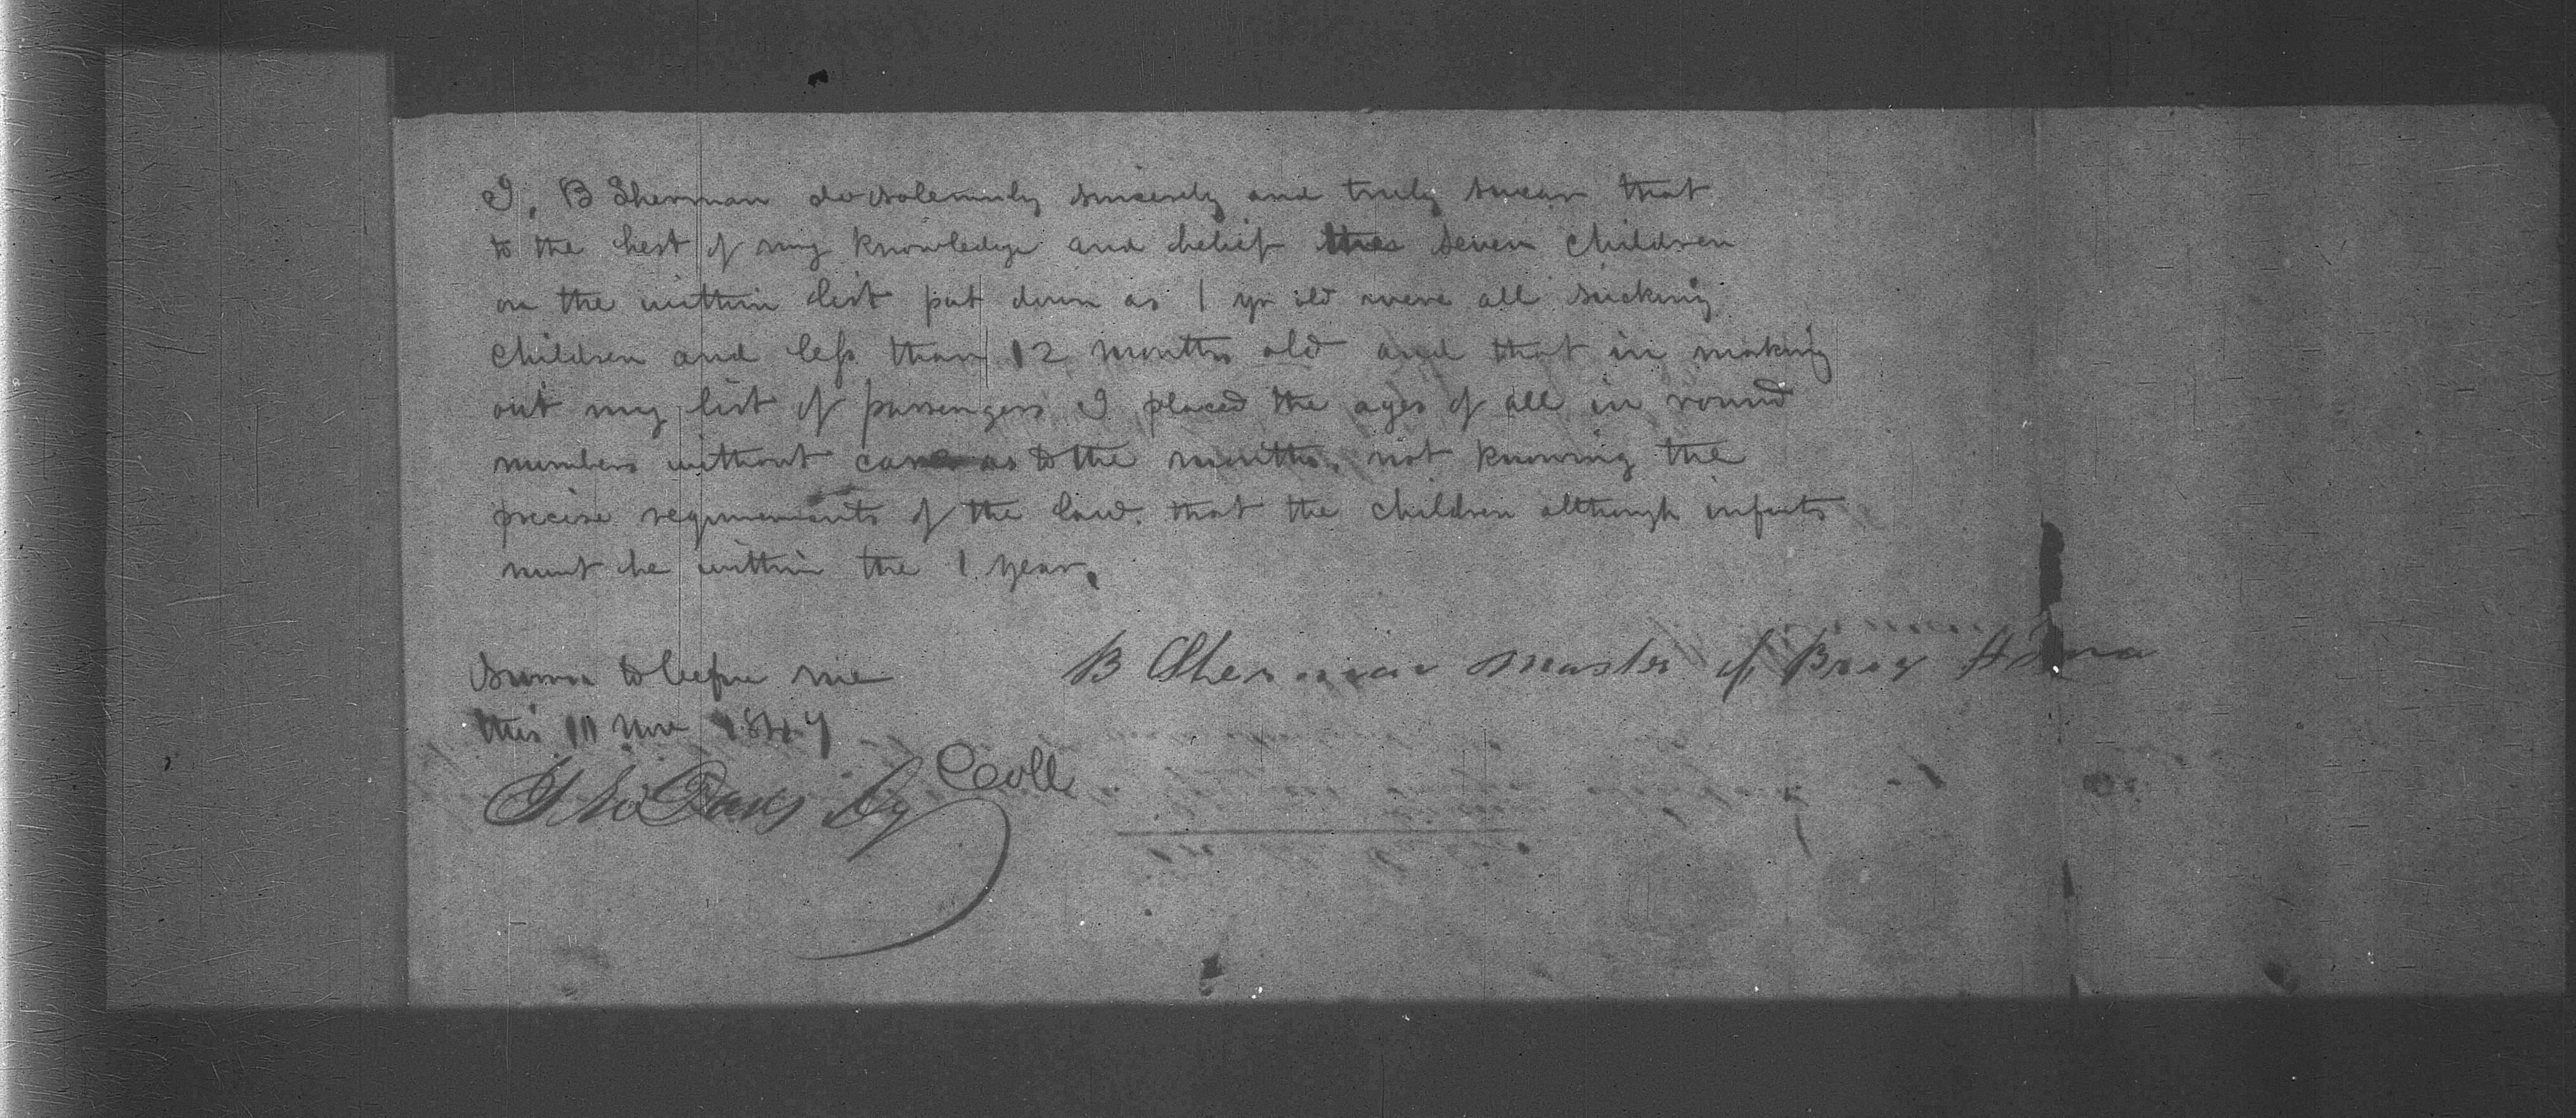 I, B Sherman do solemnly sincerely and truly swear that
to the best of my knowledge and belief the seven children
on the within list put down as 1 yr old were all sucking
children and less than 12 months old and that in making
out my list of passengers I placed the ages of all in round
numbers without care as to the months, not knowing the
precise requirements of the law. that the children although infants
must be within the 1 year.
B Sherman Master of Brig
Sworn to before me
this Nov 1847
Coll
Tho Davis Dy